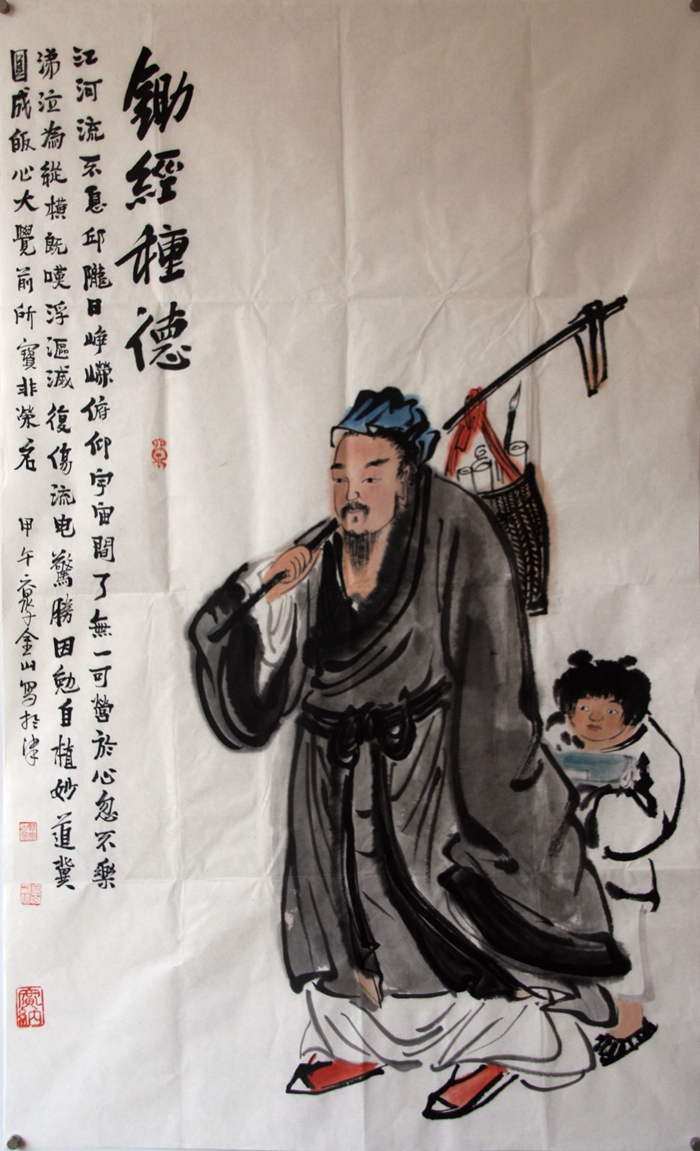 鋤經種德
江河流不息邱隴日崢嶸俯仰宇宙間了無一可營於心忽不樂
涕泣為縱橫既嘆浮漚滅復傷流电驚勝因勉自植妙道冀
圓成皈心大覺前所寶非榮名 甲午金山写於津